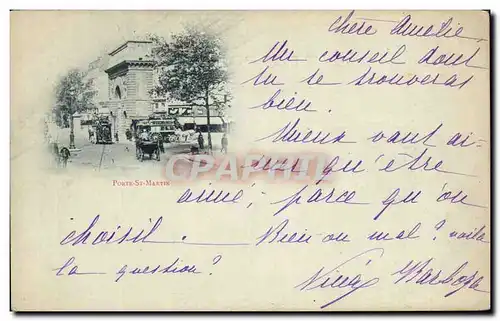 Chère Amélie,
Un conseil dont
tu te trouveras
bien.
Mieux vaut ai-
mer qu'être
aimé, parce qu'on
choisit. Bien ou mal? voilà
la question?
Barboza
PORTE-ST-MARTIN
CPA-PHIL